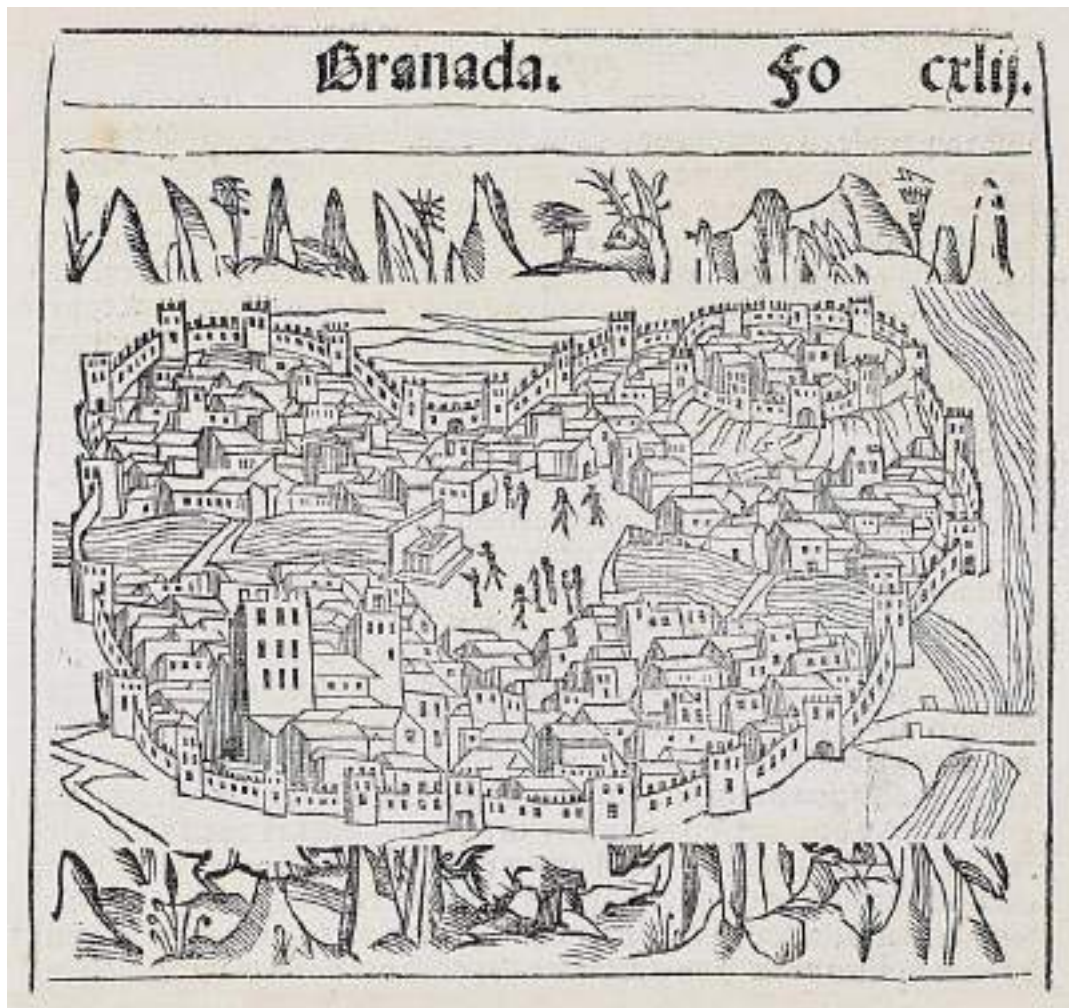 Granada. Fo cxlij.